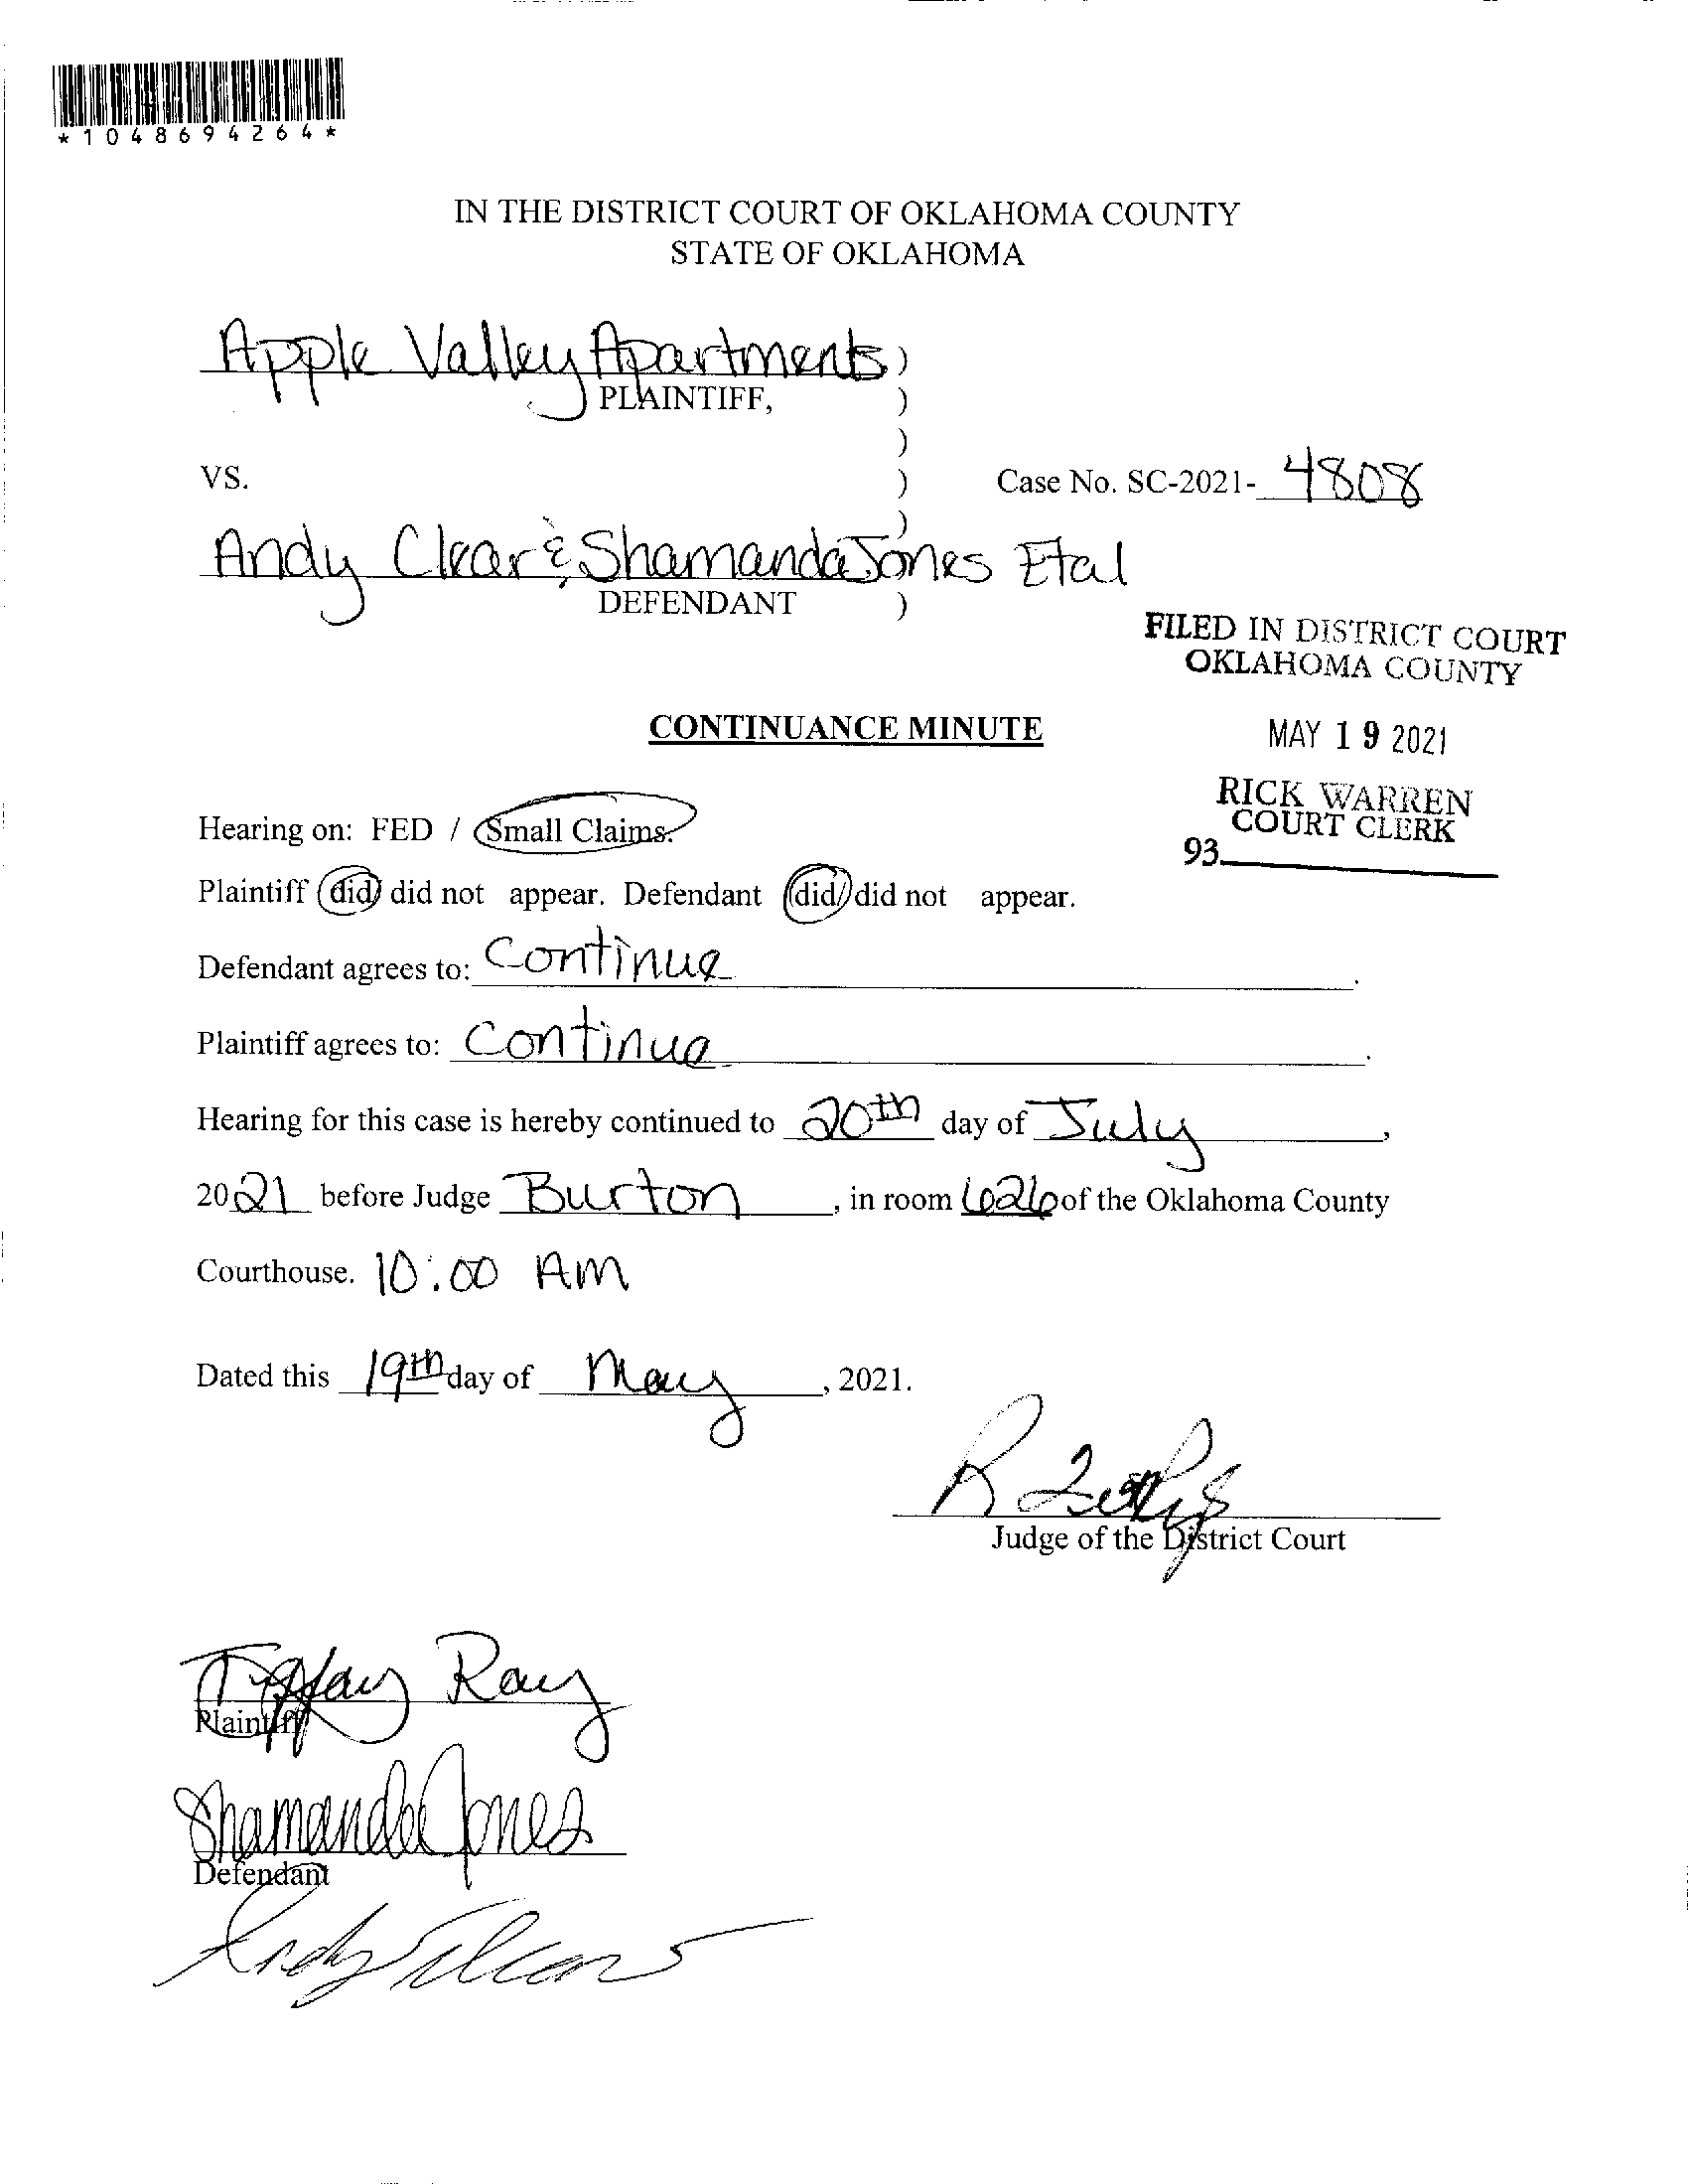 *1048694264*
IN THE DISTRICT COURT OF OKLAHOMA COUNTY
STATE OF OKLAHOMA
Apple Valley Apartments )
PLAINTIFF, )
)
VS. ) Case No. SC-2021- 4808
)
Andy Clear & Shamanda Jones Etal
DEFENDANT )
FILED IN DISTRICT COURT
OKLAHOMA COUNTY
CONTINUANCE MINUTE
MAY 19 2021
RICK WARREN
COURT CLERK
93
Hearing on: FED / Small Claims.
Plaintiff did/ did not appear. Defendant did/ did not appear.
Defendant agrees to: Continue.
Plaintiff agrees to: Continue.
Hearing for this case is hereby continued to 20th day of July,
2021 before Judge Burton, in room 626 of the Oklahoma County
Courthouse. 10:00 AM
Dated this 19th day of May, 2021.
R
Judge of the District Court
Tiffany Ray
Plaintiff
Shamanda Jones
Defendant
Andy